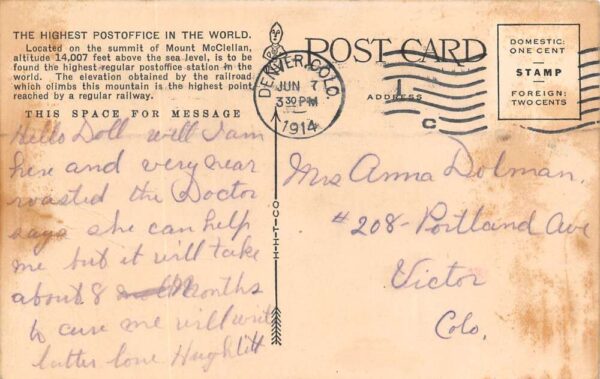 THE HIGHEST POSTOFFICE IN THE WORLD.
Located on the summit of Mount McClellan,
altitude 14,007 feet above the sea level, is to be
found the highest regular postoffice station in the
world. The elevation obtained by the railroad
which climbs this mountain is the highest point
reached by a regular railway.
THIS SPACE FOR MESSAGE
Hello Doll well I am
here and very near
roasted the Doctor
says she can help
me but it will take
about 8 months
to cure me will writ
latter love Hugh
H-H-T-CO
POST CARD
DENVER, COLO.
JUN 7
3 30 PM
1914
ADDRESS
1
C
DOMESTIC:
ONE CENT
STAMP
FOREIGN:
TWO CENTS
Mrs Anna Dolman,
#208- Portland Ave
Victor
Colo.